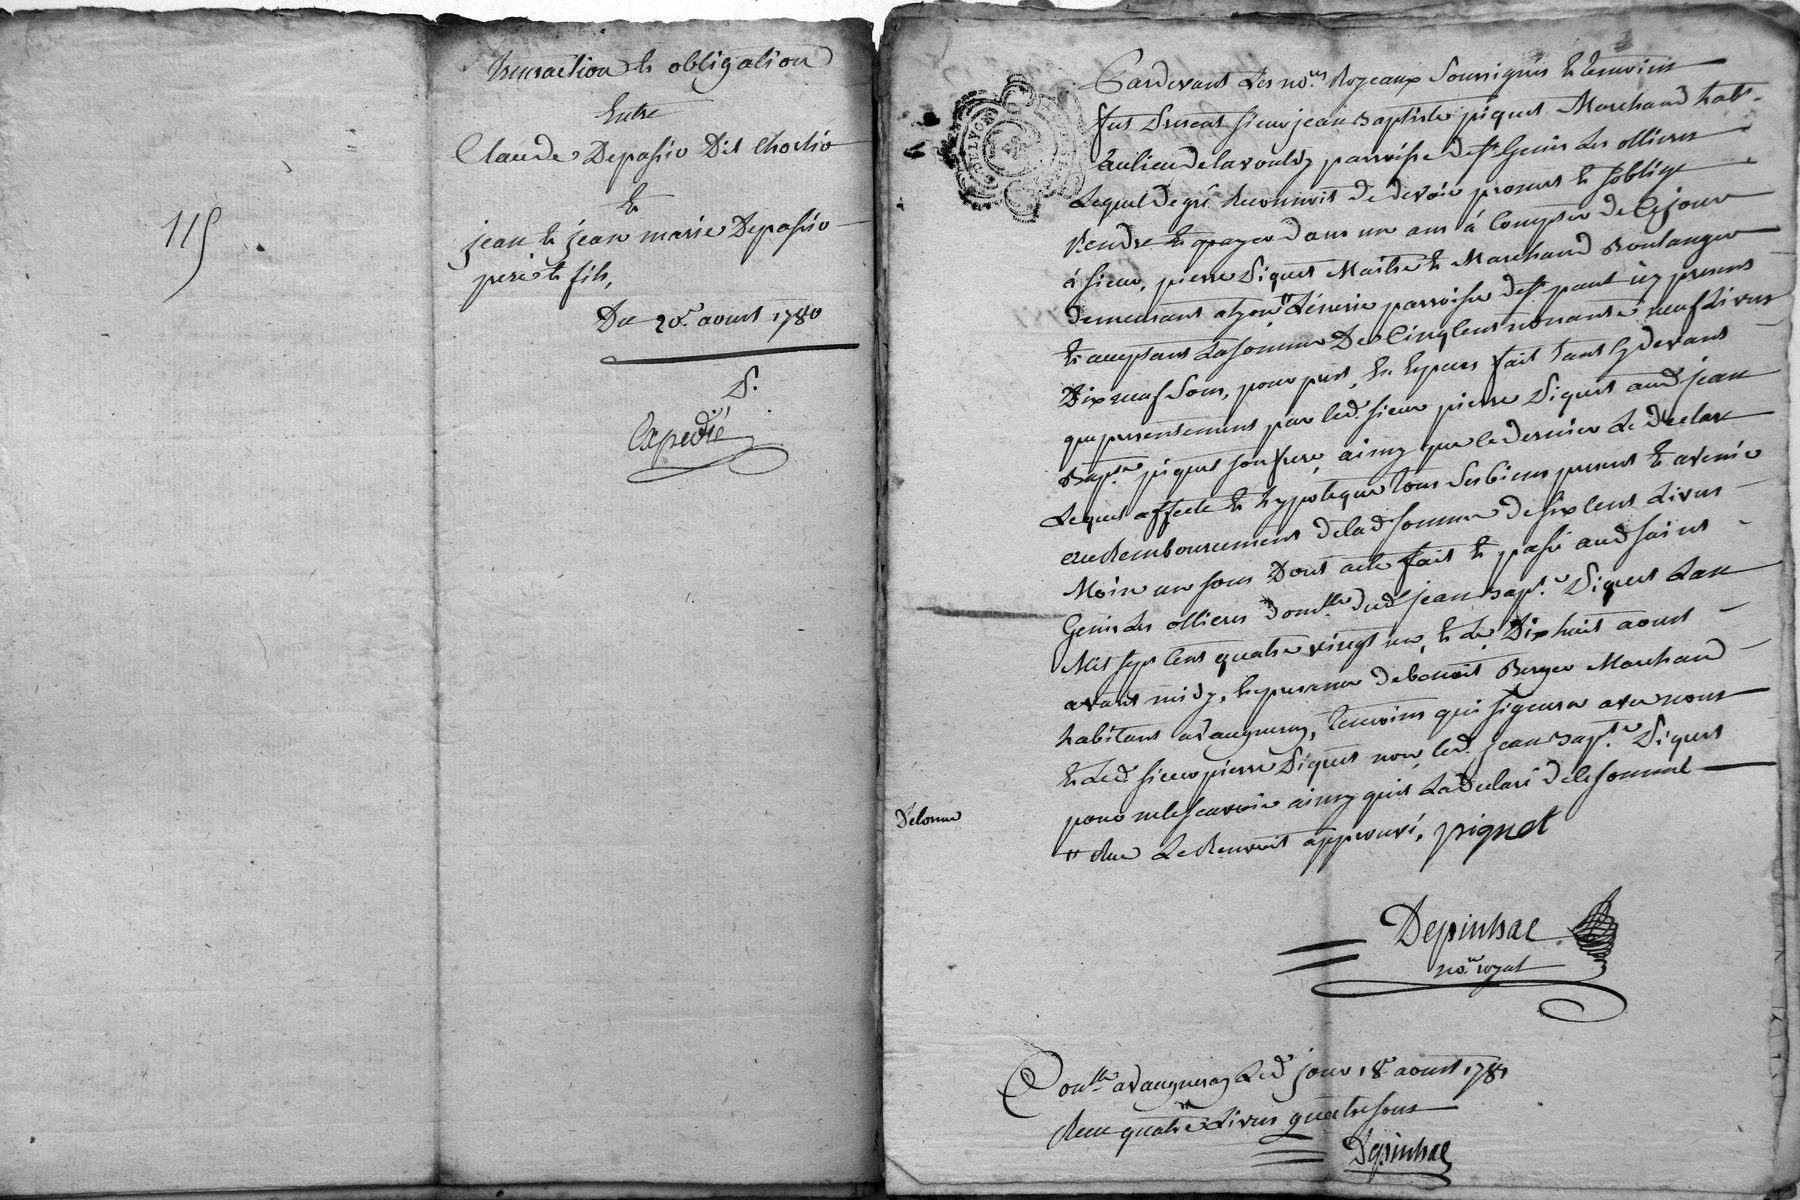 115
transaction et obligation
Entre
Claude Depassio Dit Chochio
Et
jean et jean marie Depassio
pere et fils,
Du 20e. aoust 1780
D.
Expedié
GEN DE LYON
Pardevant Les nores. Royeaux Soussignés Et temoins
fut Present sieur jean Baptiste piquet Marchand habt.
au lieu de la vouldy parroisse de st Genis Les ollieres
Lequel de gré Reconnoit de devoir promet Et s'oblige
Rendre Et payer dans un ans à Compter de Ce jour
à sieur, pierre Piquet Maitre Et Marchand Boulanger
demeurant a lyon " Lenerie parroisse de st paul icy present
Et acceptant La somme De Cinq Cent nonante neuf Livres
Dix neuf Sous, pour pret, En Especes fait tant Cy devant
que presentement par led. sieur pierre Piquet aud. jean
Bapte. piquet son frere, ainsy que ce dernier Le Declare
Lequel affecte Et hypoteque tous Ses biens present Et avenir
au Remboursement de lad. somme de six Cent Livres
Moin un sous Dont acte fait Et passé aud. saint
Genis Les ollieres domlle. dud. jean Bapte. Piquet L'an
Mil sept Cent quatre vingt un, Et Le Dix huit aoust
avant midy, En presence de benoit Berger Marchand
habitant a vaugneray, temoins qui signera avec nous
Et Led. sieur pierre Piquet non led. jean Bapte. Piquet
pour ne le scavoir ainsy qu'il La declaré de ce sommé
" Rue Le Renvoit approuvé, piquet
Delorme
Depinhac
nore. royal
Conllé a vaugneray Led. jour 18e aoust 1781
Reçu quatre Livres quatre sous
Depinhac